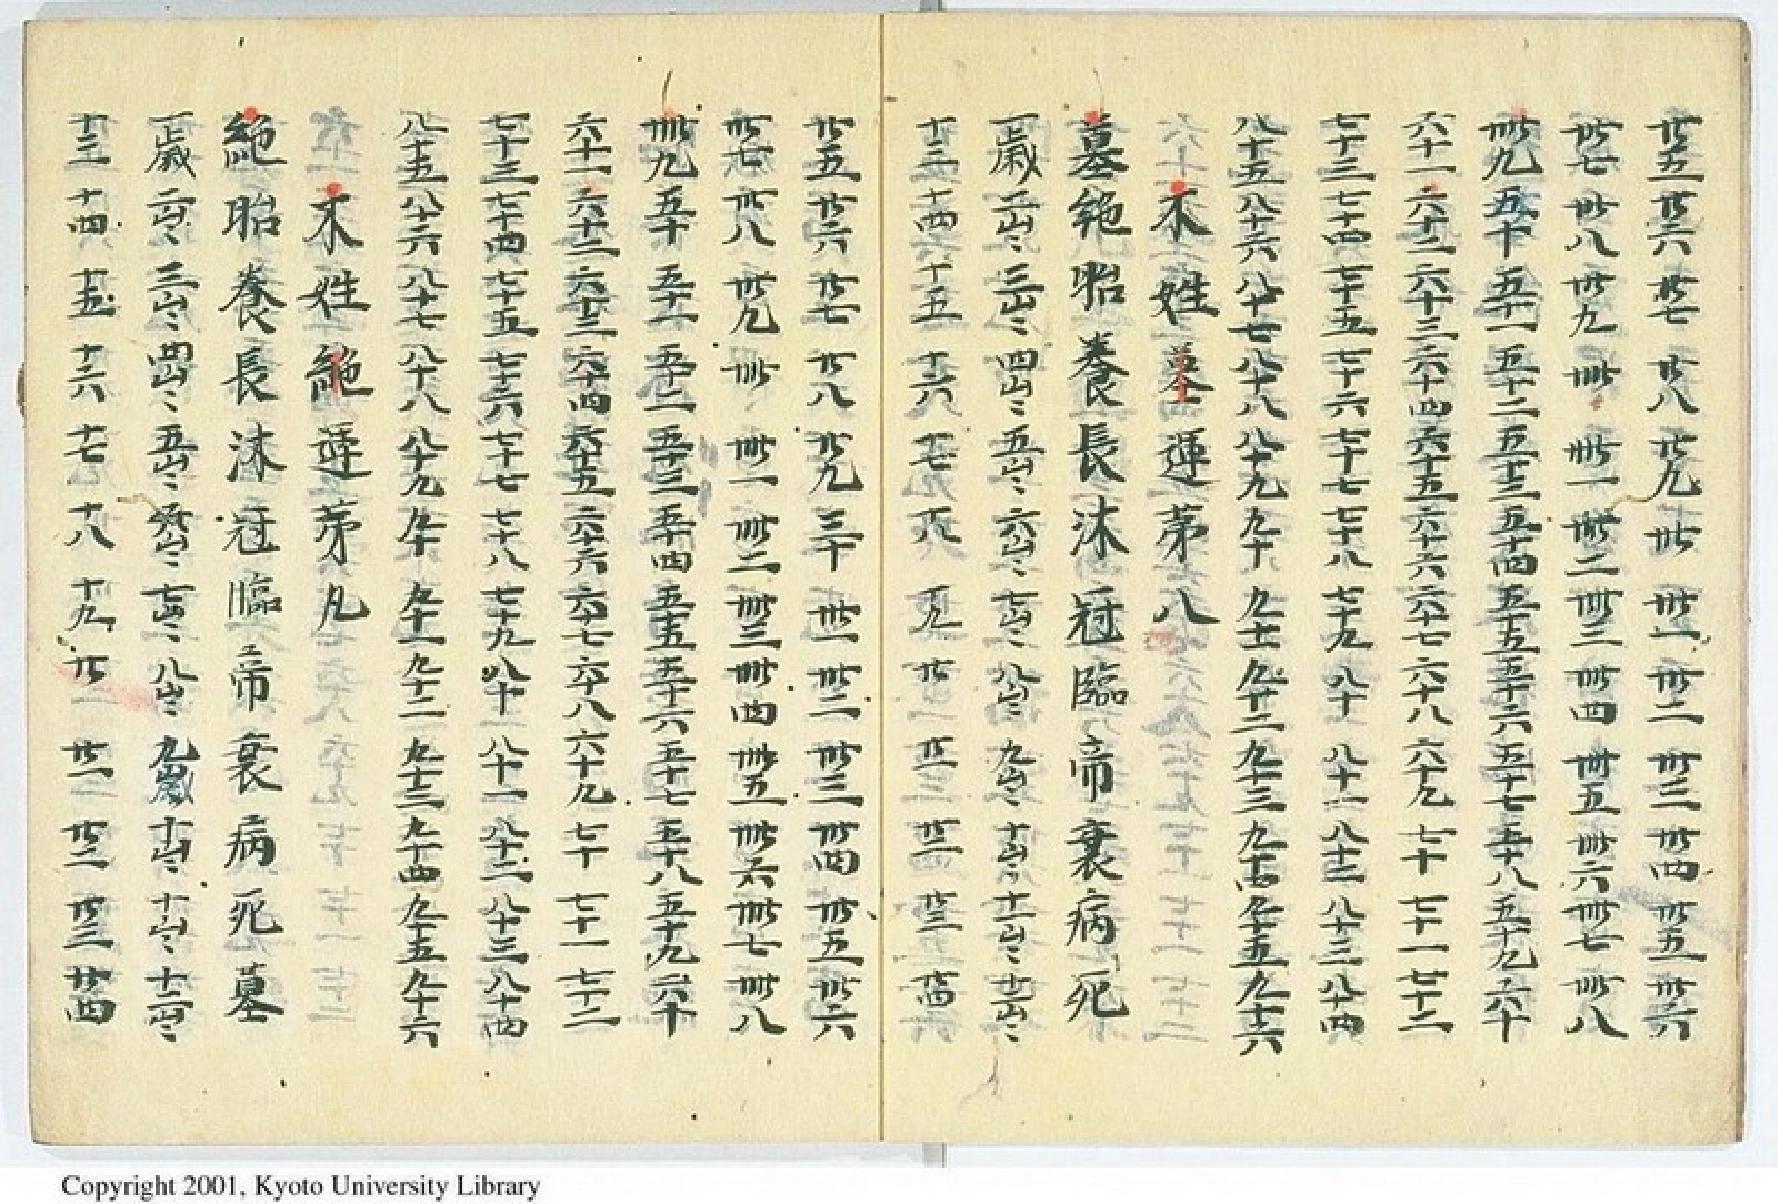 廿五 廿六 廿七 廿八 廿九 丗 丗一 丗二 丗三 丗四 丗五 丗六
丗七 丗八 丗九 卌 卌一 卌二 卌三 卌四 卌五 卌六 卌七 卌八
卌九 五十 五十一 五十二 五十三 五十四 五十五 五十六 五十七 五十八 五十九 六十
六十一 六十二 六十三 六十四 六十五 六十六 六十七 六十八 六十九 七十 七十一 七十二
七十三 七十四 七十五 七十六 七十七 七十八 七十九 八十 八十一 八十二 八十三 八十四
八十五 八十六 八十七 八十八 八十九 九十 九十一 九十二 九十三 九十四 九十五 九十六
木姓墓運苐八
墓 絶 胎 養 長 沐 冠 臨 帝 衰 病 死
一歳 二歳 三歳 四歳 五歳 六歳 七歳 八歳 九歳 十歳 十一歳 十二歳
十三 十四 十五 十六 十七 十八 十九 廿 廿一 廿二 廿三 廿四
廿五 廿六 廿七 廿八 廿九 三十 丗一 丗二 丗三 丗四 丗五 丗六
丗七 丗八 丗九 卌 卌一 卌二 卌三 卌四 卌五 卌六 卌七 卌八
卌九 五十 五十一 五十二 五十三 五十四 五十五 五十六 五十七 五十八 五十九 六十
六十一 六十二 六十三 六十四 六十五 六十六 六十七 六十八 六十九 七十 七十一 七十二
七十三 七十四 七十五 七十六 七十七 七十八 七十九 八十 八十一 八十二 八十三 八十四
八十五 八十六 八十七 八十八 八十九 九十 九十一 九十二 九十三 九十四 九十五 九十六
木姓絶運苐九
絶 胎 養 長 沐 冠 臨 帝 衰 病 死 墓
一歳 二歳 三歳 四歳 五歳 六歳 七歳 八歳 九歳 十歳 十一歳 十二歳
十三 十四 十五 十六 十七 十八 十九 廿 廿一 廿二 廿三 廿四
Copyright 2001, Kyoto University Library